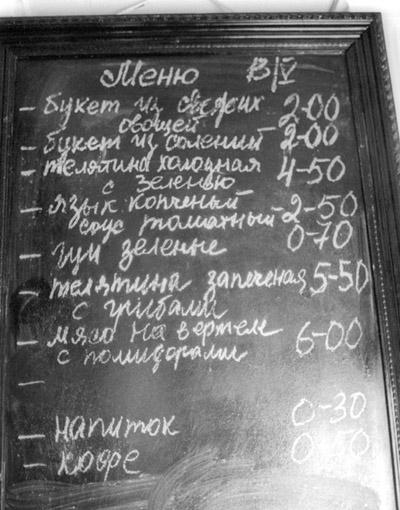 Меню В/V
- букет из свежих 2-00
овощей
- букет из солений 2-00
- телятина холодная 4-50
с зеленью
- язык копченый 2-50
соус томатный
- зеленые 0-70
- телятина запеченая 5-50
с грибами
- мясо на вертеле 6-00
с помидорами
-
- напиток 0-30
- кофе 0-50